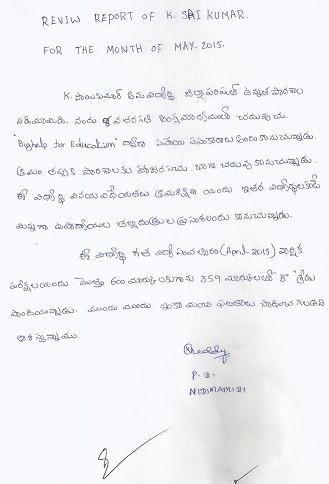 REVIEW REPORT OF K. SAI KUMAR.
FOR THE MONTH OF MAY. 2015.
K. సాయికుమార్ అను విద్యార్థి జిల్లాపరిషత్ ఉన్నత పాఠశాల
నిడిమామిడి. నందు 8వ తరగతి ఇంగ్లీషుమాధ్యమంలో చదువుచు
"Bighelp for Education" ద్వారా సహాయ సహకారాలు అందుకొనుచున్నాడు.
క్రమం తప్పక పాఠశాలకు హాజరగుచు, బాగా చదువుకొనుచున్నాడు.
ఈ విద్యార్థి వినయ విధేయతలు క్రమశిక్షణ యందు ఇతర విద్యార్థులకంటే
మిన్నగా ఉపాధ్యాయుల తల్లిదండ్రుల ప్రశంసలందు కొనుచున్నాడు.
ఈ విద్యార్థి గత విద్యా సంవత్సరం (April-2015) వార్షిక
పరీక్షలయందు మొత్తం 600 మార్కులకుగాను 359 మార్కులతో "B" గ్రేడు
పొందియున్నాడు. ముందు ముందు ఇంకా మంచి ఫలితాలు సాధించ గలడని
ఆశిస్తున్నాము.
P. S.
NIDIMAMIDI